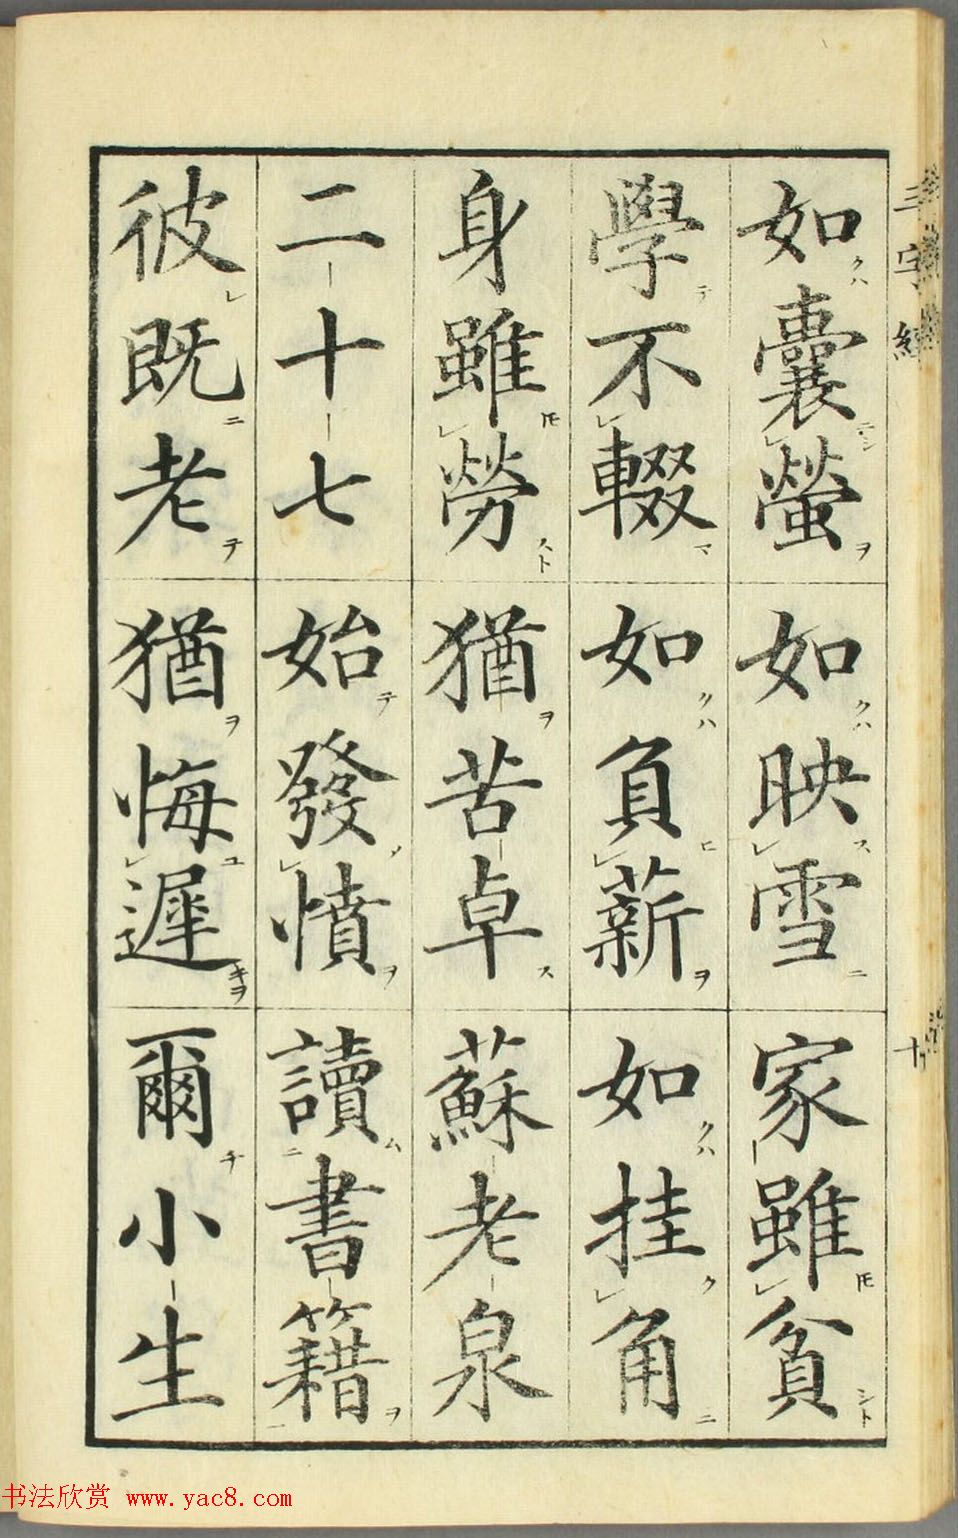 三字經
如囊螢如映雪家雖貧
學不輟如負薪如挂角
身雖勞猶苦卓蘇老泉
二十七始發憤讀書籍
彼既老猶悔遲爾小生
十
书法欣赏 www.yac8.com